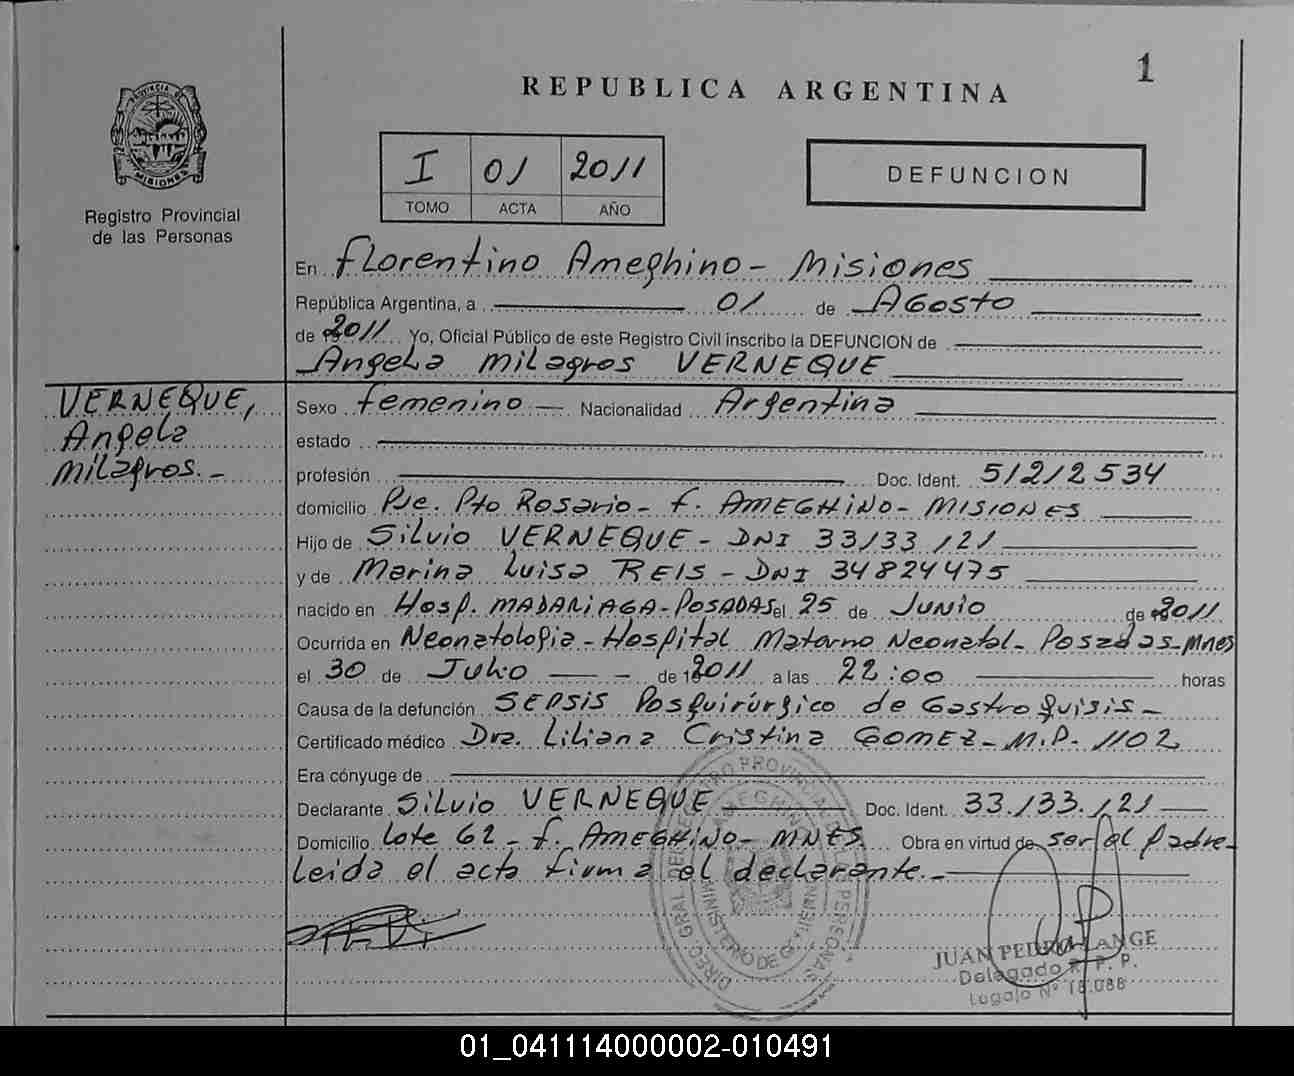 1
REPUBLICA ARGENTINA
PROVINCIA DE
MISIONES
Registro Provincial
de las Personas
I 01 2011
TOMO ACTA AÑO
DEFUNCION
En Florentino Ameghino - Misiones
República Argentina, a 01 de Agosto
de 2011 Yo, Oficial Público de este Registro Civil inscribo la DEFUNCION de
Angela Milagros VERNEQUE
VERNEQUE,
Angela
Milagros.-
Sexo femenino — Nacionalidad Argentina
estado
profesión Doc. Ident. 51212534
domicilio Pje. Pto Rosario - F. AMEGHINO - MISIONES
Hijo de Silvio VERNEQUE - DNI 33133121
y de Marina Luisa REIS - DNI 34824475
nacido en Hosp. MADARIAGA - POSADAS el 25 de JUNIO de 2011
Ocurrida en Neonatologia - Hospital Materno Neonatal - Posadas - Mnes
el 30 de Julio — - de 2011 a las 22:00 horas
Causa de la defunción SEPSIS Posquirúrgico de Gastroquisis -
Certificado médico Dra. Liliana Cristina GOMEZ - M.P. 1102
Era cónyuge de
Declarante Silvio VERNEQUE Doc. Ident. 33.133.121 —
Domicilio Lote 62 - F. AMEGHINO - MNES Obra en virtud de ser el padre -
Leida el acta firma el declarante. -
DIREC. GRAL. DEL REGISTRO PROVINCIAL DE LAS PERSONAS
AMEGHINO
MINISTERIO DE GOBIERNO
JUAN PEDRO LANGE
Delegado R. P. P.
Legajo Nº 18.088
01_041114000002-010491